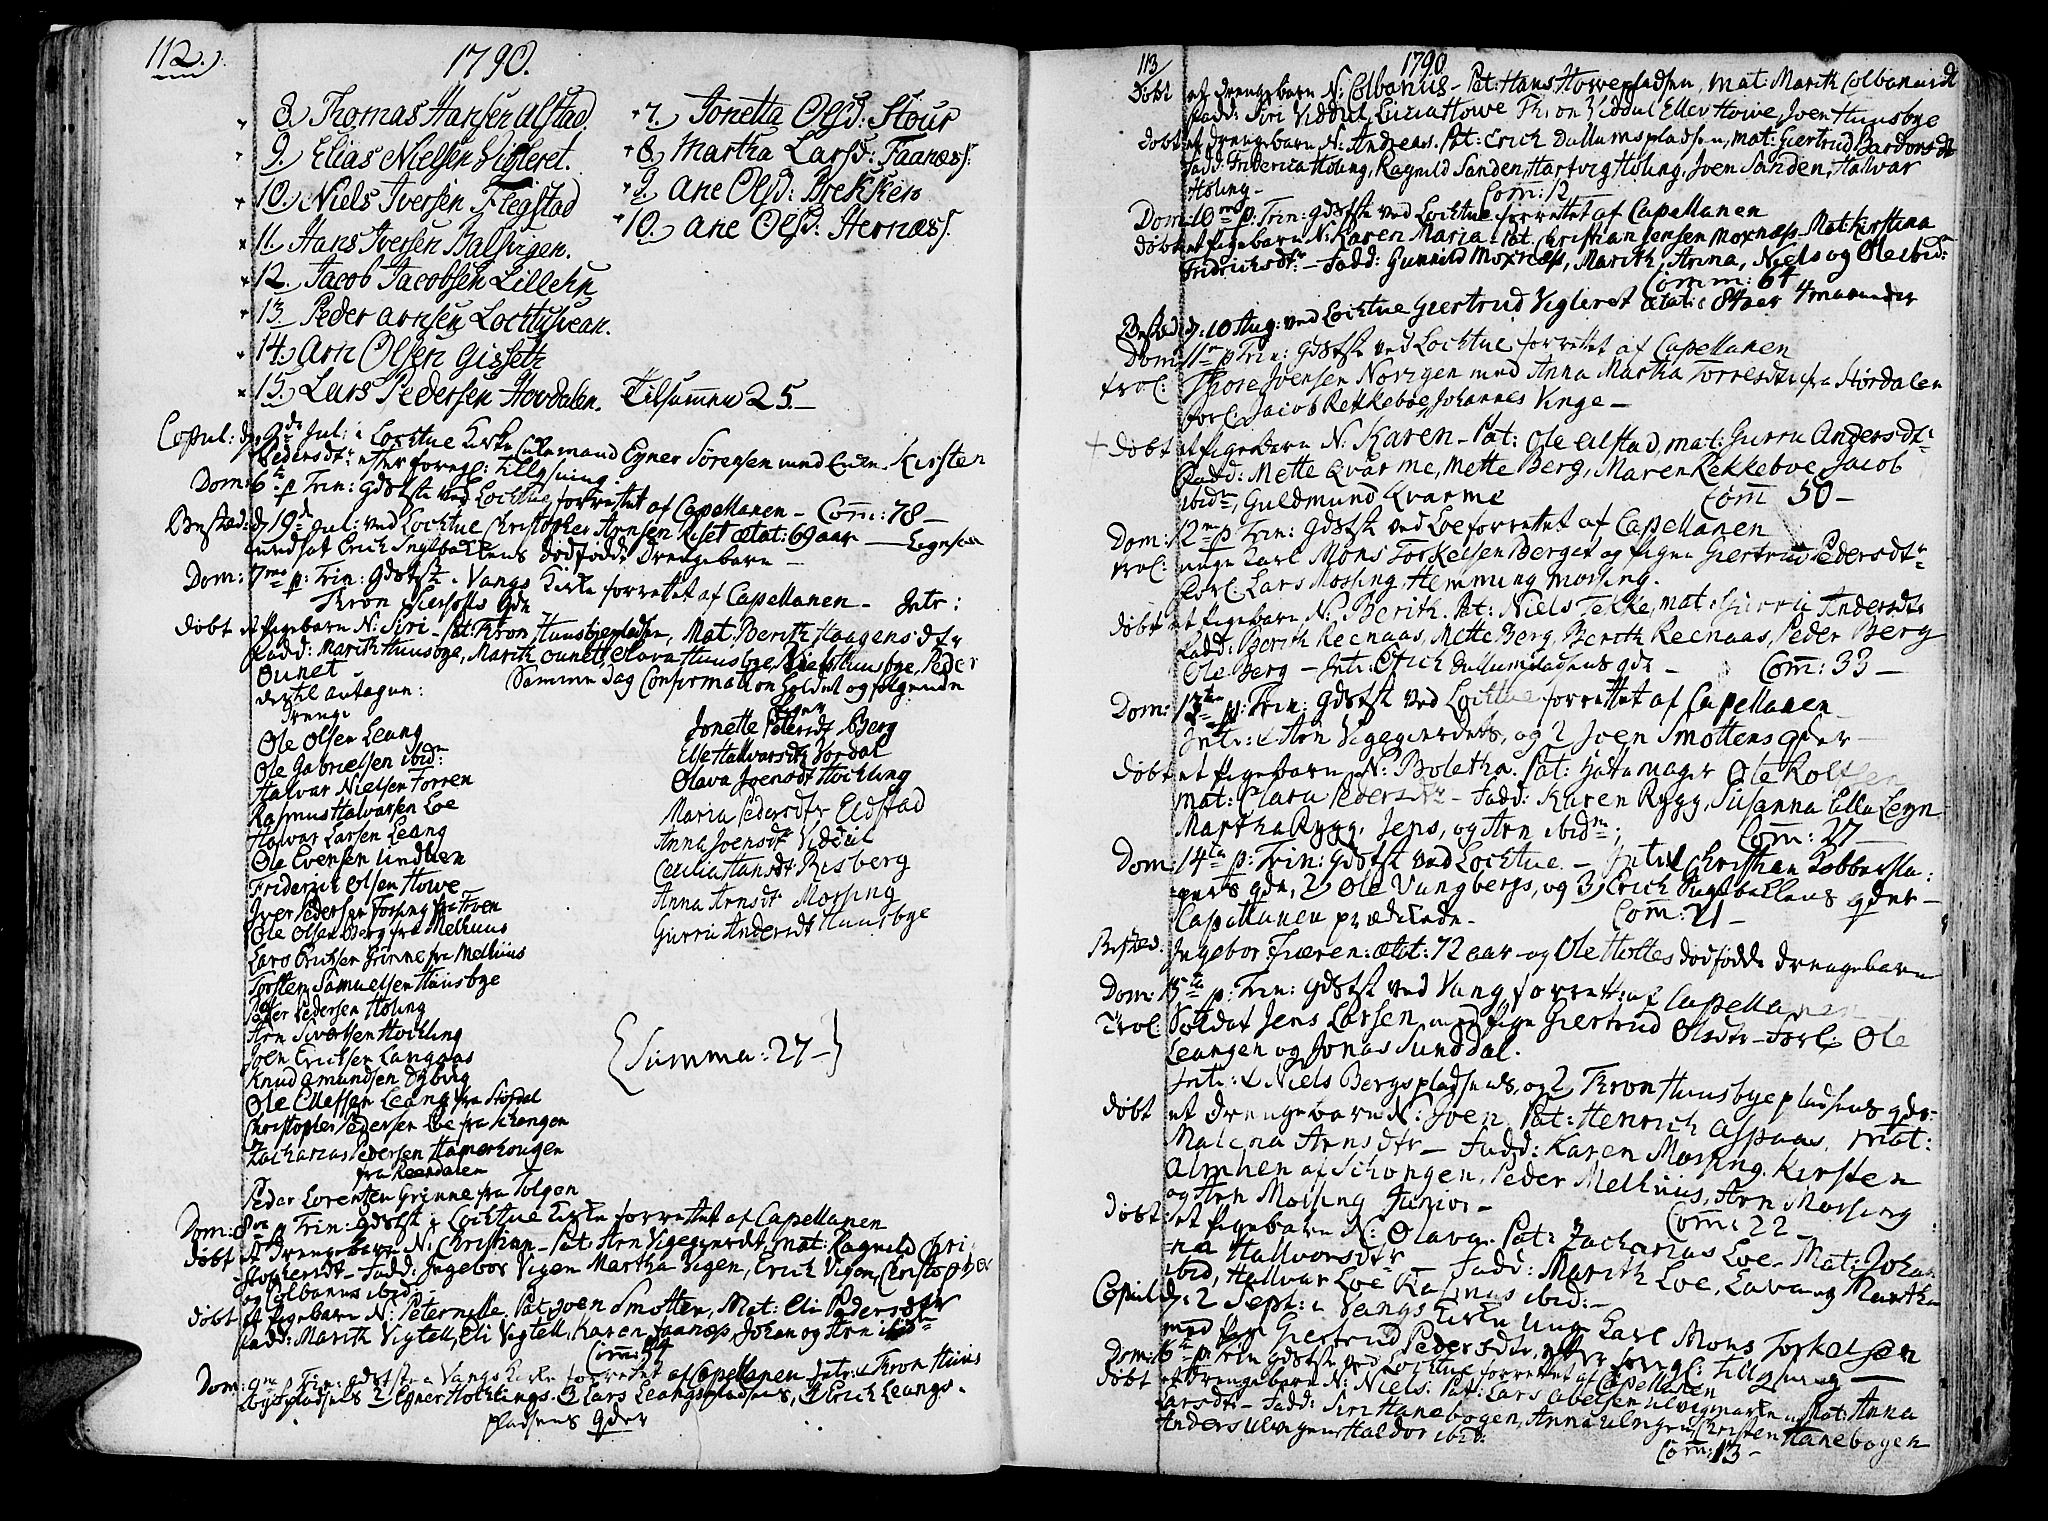 112.
1790.
8. Thomas Hansen Alstad.
9. Elias Nielsen Vigleret.
10. Niels Iversen Flegstad
11. Hans Iversen Balhigen.
12. Jacob Jacobsen Lillehn
13. Peder Arnsen Lochtusvean.
14. Arn Olsen Gisseth
15. Lars Pedersen Hovdalen. Tilsammen 25.
7. Jonetta Olsd: Stour
8. Martha Larsd: Faanæs.
9. Ane Olsd: Brekken
10. Ane Olsd: Hernæs.
Copul: d. 9de Jul: i Lochtue Kirke Egner Sörensen med Enken Kirsten
Pedersdtr efter foregl: Tillysning
Dom: 6te p Trin: Gdstst ved Lochtue forrettet af Capellanen – Com: 78 –
Bested: d 19de Jul: ved Lochtue Christopher Arnsen Riset ætat: 69 aar –
Erich dödfödde Drengebarn –
Dom: 7me p: Trin: Gdstst i Vangs Kirke forrettet af Capellanen – Intr:
Thron gde
döbt et Pigebarn N: Siri – Pat: Thron Huusbyepladsen, Mat: Berith Haagensdtr
Fadd: Marith Huusbye, Marith Ounet, Olava Huusbye, Niels Huusbye, Peder
Ounet Samme Dag Confirmation holdet og følgende
dertil antagen:
Drenge
Ole Olsen Leang
Ole Gabrielsen ibid:
Halvar Nielsen Torren
Rasmus Halvarsen Loe
Halvar Larsen Leang
Ole Evensen Lindhen
Friderich Olsen Howe
Iver Pedersen Forsing fra Troen
Ole Olsen Berg fra Melhuus
Lars Erichsen Grinne fra Melhuus
Torsten Samuelsen Huusbye
Peder Pedersen Höling
Arn Siversen Hochling
Joen Erichsen Langaas
Knud Amundsen Dyburg
Ole Ellefsen Leang fra Stördal
Christopher Pedersen Loe fra Schongen
Zacharias Pedersen Hamerhougen
fra Reendalen
Peder Lorentzen Grinne fra Tolgen
Piger
Jonette Petersdt Berg
Else Hallvarsdtr Vordal
Olava Joensdt Hochling
Maria Pedersdtr Eidstad
Anna Joensdtr Viddul
Cecilia Hansdt Risberg
Anna Arnsdtr Morsing
Gurru Andersdt Huusbye
Summa: 27 –
Dom: 8va p Trin: Gdstst i Lochtue Kirke forrettet af Capellanen
döbt et Drengebarn N: Christian – Pat: Arn Vigegjerdet, mat: Ragnild Chri-
stophersdt – Fadd: Ingebor Vigen Martha Vigen, Erich Vigen, Christopher
og Colbanus ibid:
döbt et Pigebarn N: Peternelle, Pat: Joen Smotten, Mat: Eli Pedersdtr
Fadd: Marith Vigtell, Eli Vigtell, Karen Faanæs, Johan og Arn ibid:
Com: 54
Dom: 9na p Trin: Gdstst fra Vangs Kirke forrettet af Capellanen Intr: 1 Thron Huus
byepladsens 2 Egner Hochlings. 3 Lars Leangspladsens, 4 Erich Leangs-
pladsens gder
113
1790
Döbt et Drengebarn N: Colbanus – Pat: Hans Howepladsen, mat: Marith Colbanusdt
Fadd: Siri Viddul, Lucia Howe Thron Viddul Ellev Howe, Joen Huusbye
döbt et Drengebarn N: Andreas. Pat: Erich Dullumspladsen, mat: Giertrud Bardonsdt
Fadd: Friderica Höling, Ragnild Sanden, Hartvig Höling, Joen Sanden, Halvar
Höling – Com: 12
Dom: 10me p. Trin: Gdstst ved Lochtue forrettet af Capellanen
döbt et Pigebarn N: Karen Maria – Pat: Christian Jensen Moxnæs – Mat: Kirstina
Fridrichsdtr – Fadd: Gunnild Moxnæs, Marith, Anna, Niels og Ole ibid:
Comm: 64
Bested: d. 10 Aug: ved Lochtue Giertrud Vigleret ætat: 84 aar 4 maaneder
Dom: 11te p Trin: Gdstst ved Lochtue forrettet af Capellanen
trol: Thore Joensen Norigen med Anna Martha Torresdtr fra Stördalen
Forl: Jacob Rekkeboe, Johannes Unge –
+ Döbt et Pigebarn N: Karen – Pat: Ole Alstad, mat: Gurru Andersdtr
Fadd: Mette Qvarme, Mette Berg, Maren Rekkeboe, Jacob
ibidm, Guldmund Kvarme Com 50 –
Dom: 12me p Trin: Gdstst ved Loe forrettet af Capellanen
trol: unge Karl Mons Torkelsen Berget og Pigen Giertrud Pedersdtr
Forl: Lars Morsing, Hemming Morsing.
döbt et Pigebarn N: Berith. Pat: Niels Tekke, mat: Gurru Andersdtr
Fadd: Berith Reenaas, Mette Berg, Berith Reenaas, Peder Berg
Ole Berg – Intr: Erich Dullumsladsens gde – Com: 33 –
Dom: 13te p: Trin: Gdstst ved Lochtue forrettet af Capellanen
Intr: 1 Arn Vigegjerdets, og 2 Joen Smottens gder –
döbt et Pigebarn N: Bolettha. Pat: Hattemager Ole Rolfsen
mat: Clara Pedersdtr – Fadd: Karen Rygg, Susanna Lille Legn
Martha Rygg, Jens, og Arn ibidm: Com: 27 –
Dom: 14ta p: Trin: Gdstst ved Lochtue – Intr: 1 Christian Kobbersla-
gers gde, 2) Ole Vangbergs, og 3) Erich gder –
Capellanen prædikede – Com: 21 –
Bested: Ingebor Fiæren: ætat: 72 aar – og Ole Holtes dödfödde Drengebarn
Dom: 15te p: Trin: Gdstst ved Vang forrett: af Capellanen
Trol: Soldat Jens Larsen med Pige Giertrud Olsdtr – Forl: Ole
Leangen og Jonas Sunddal.
Intr: 1 Niels Bergspladsens, og 2 Thron Huusbyepladsens gder –
döbt et Drengebarn N: Joen, Pat: Henrich Aspaas, Mat:
Malena Arnsdtr – Fadd: Karen Morsing, Kirsten
Almhen af Schongen, Peder Melhuus, Arn Morsing
og Arn Morsing Junior – Com: 22 –
döbt et Pigebarn N: Olava. Pat: Zacharias Loe – Mat: Johan
na Hallvorsdtr Fadd: Marith Loe, Lava og Martha
ibid, Hallvar Loe Rasmus ibid: –
Copul: d: 2 Sept: i Vangs Kirke unge Karl Mons Torkelsen
med Pige Giertrud Pedersdtr, efter foregl: Tillysning –
Dom: 16te p Trin Gdstst ved Lochtue forrettet af Capellanen
Döbt et Drengebarn N: Niels: Pat: Lars Abelsen Ulvigmarken, Mat: Anna
Larsdtr – Fadd: Siri Hanebogen, Anna Ulvigen, Christen Hanebogen
Anders Ulvigen Haldor ibid:
Com: 13 –